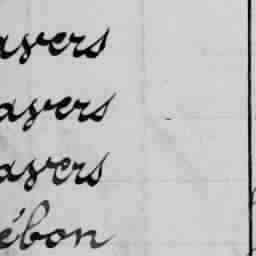 avers
avers
avers
ébon